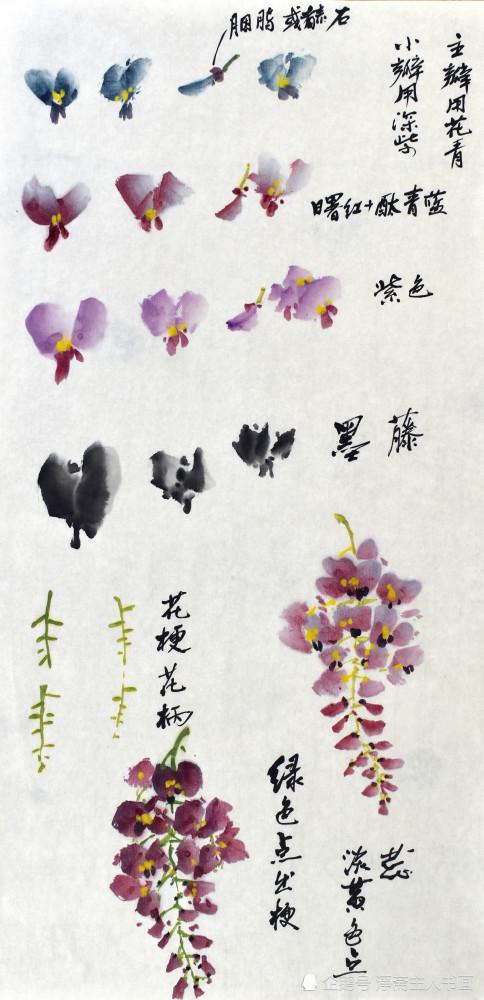 胭脂 或赭石
主瓣用花青
小瓣用深紫
曙红+酞青蓝
紫色
藤
墨
花梗花柄
绿色点出梗
蕊
淡黄色点
企鹅号 淳斋主人书画